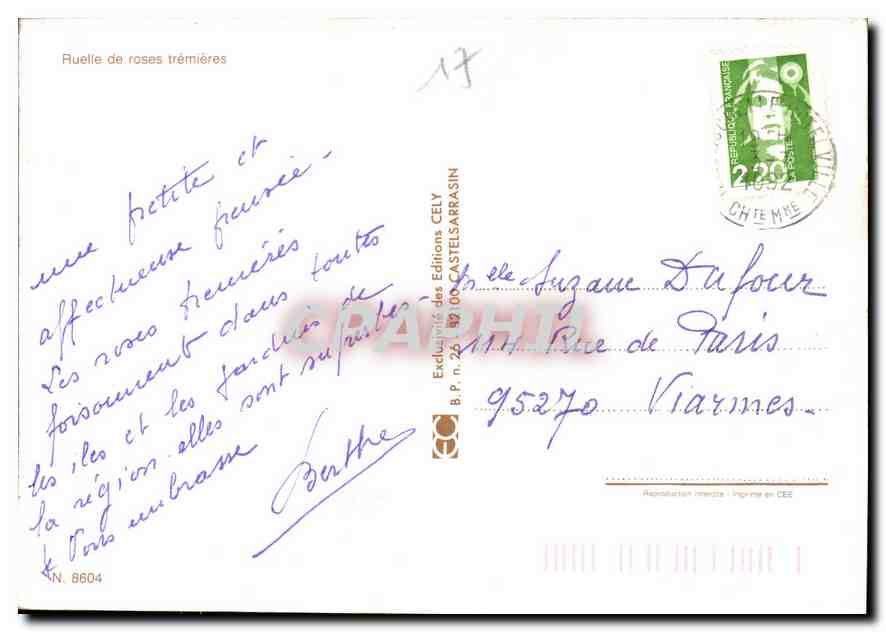 Ruelle de roses trémières
17
RÉPUBLIQUE FRANÇAISE
2,20
POSTES
VILLE
1992
CHTE MME
une petite et
affectueuse pensée -
Les roses tremières
foisonnent dans toutes
les iles et les jardins de
la région. elles sont superbes -
Je vous embrasse
Berthe
N. 8604
Exclusivité des Editions CELY
B.P. n. 26 82100 CASTELSARRASIN
EC
CPAPHIL
Melle Suzane Dufour
114 Rue de Paris
95270 Viarmes -
Reproduction interdite - Imprimé en CEE